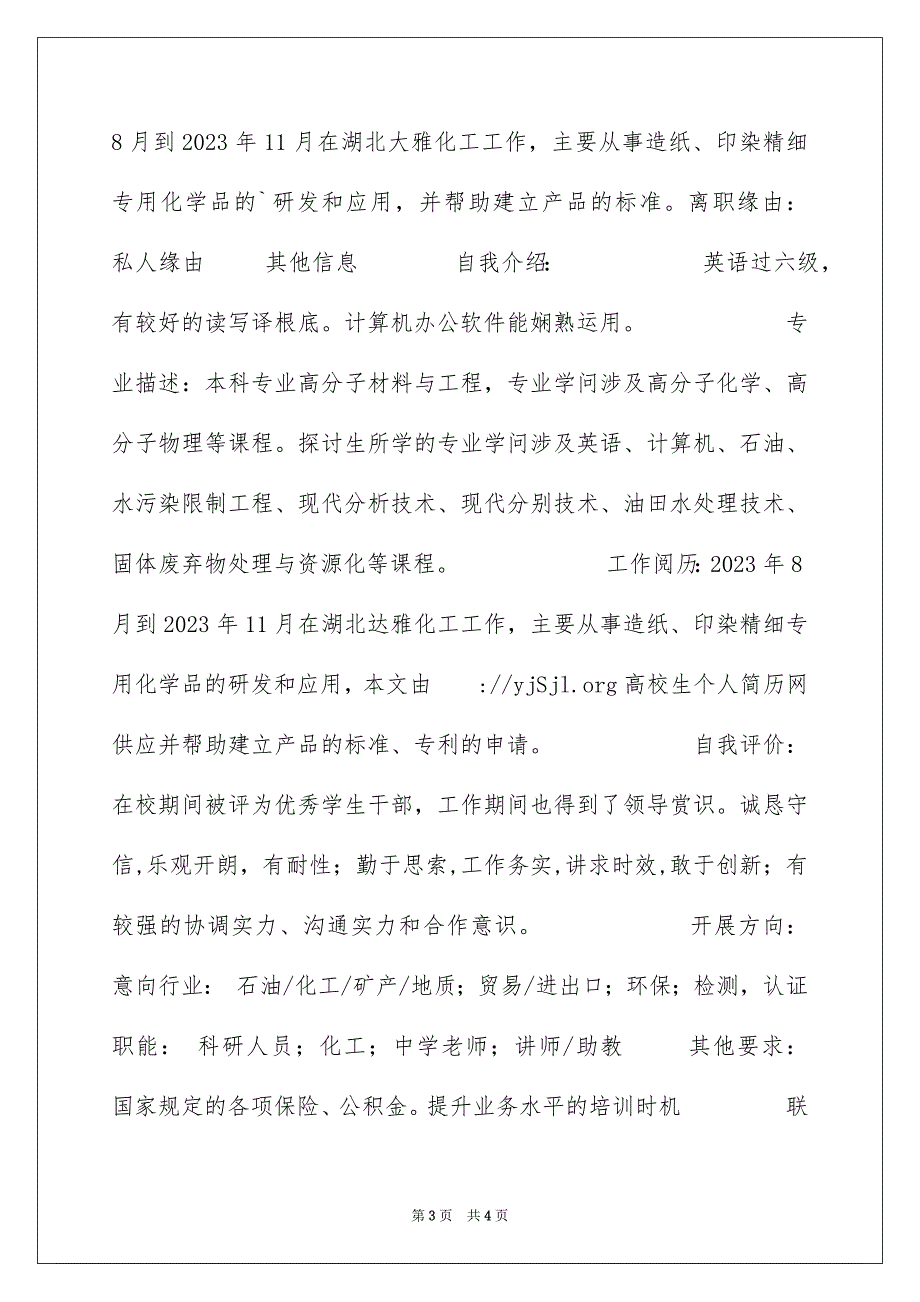 8月到2023年11月在湖北大雅化工工作，主要从事造纸、印染精细
专用化学品的`研发和应用，并帮助建立产品的标准。离职缘由：
私人缘由 其他信息 自我介绍： 英语过六级，
有较好的读写译根底。计算机办公软件能娴熟运用。 专
业描述：本科专业高分子材料与工程，专业学问涉及高分子化学、高
分子物理等课程。探讨生所学的专业学问涉及英语、计算机、石油、
水污染限制工程、现代分析技术、现代分别技术、油田水处理技术、
固体废弃物处理与资源化等课程。 工作阅历：2023年8
月到2023年11月在湖北达雅化工工作，主要从事造纸、印染精细专
用化学品的研发和应用，本文由 ://yjSjl.org高校生个人简历网
供应并帮助建立产品的标准、专利的申请。 自我评价：
在校期间被评为优秀学生干部，工作期间也得到了领导赏识。诚恳守
信,乐观开朗，有耐性；勤于思索,工作务实,讲求时效,敢于创新；有
较强的协调实力、沟通实力和合作意识。 开展方向：
意向行业： 石油/化工/矿产/地质；贸易/进出口；环保；检测，认证
职能： 科研人员；化工；中学老师；讲师/助教 其他要求：
国家规定的各项保险、公积金。提升业务水平的培训时机 联
第3页 共4页